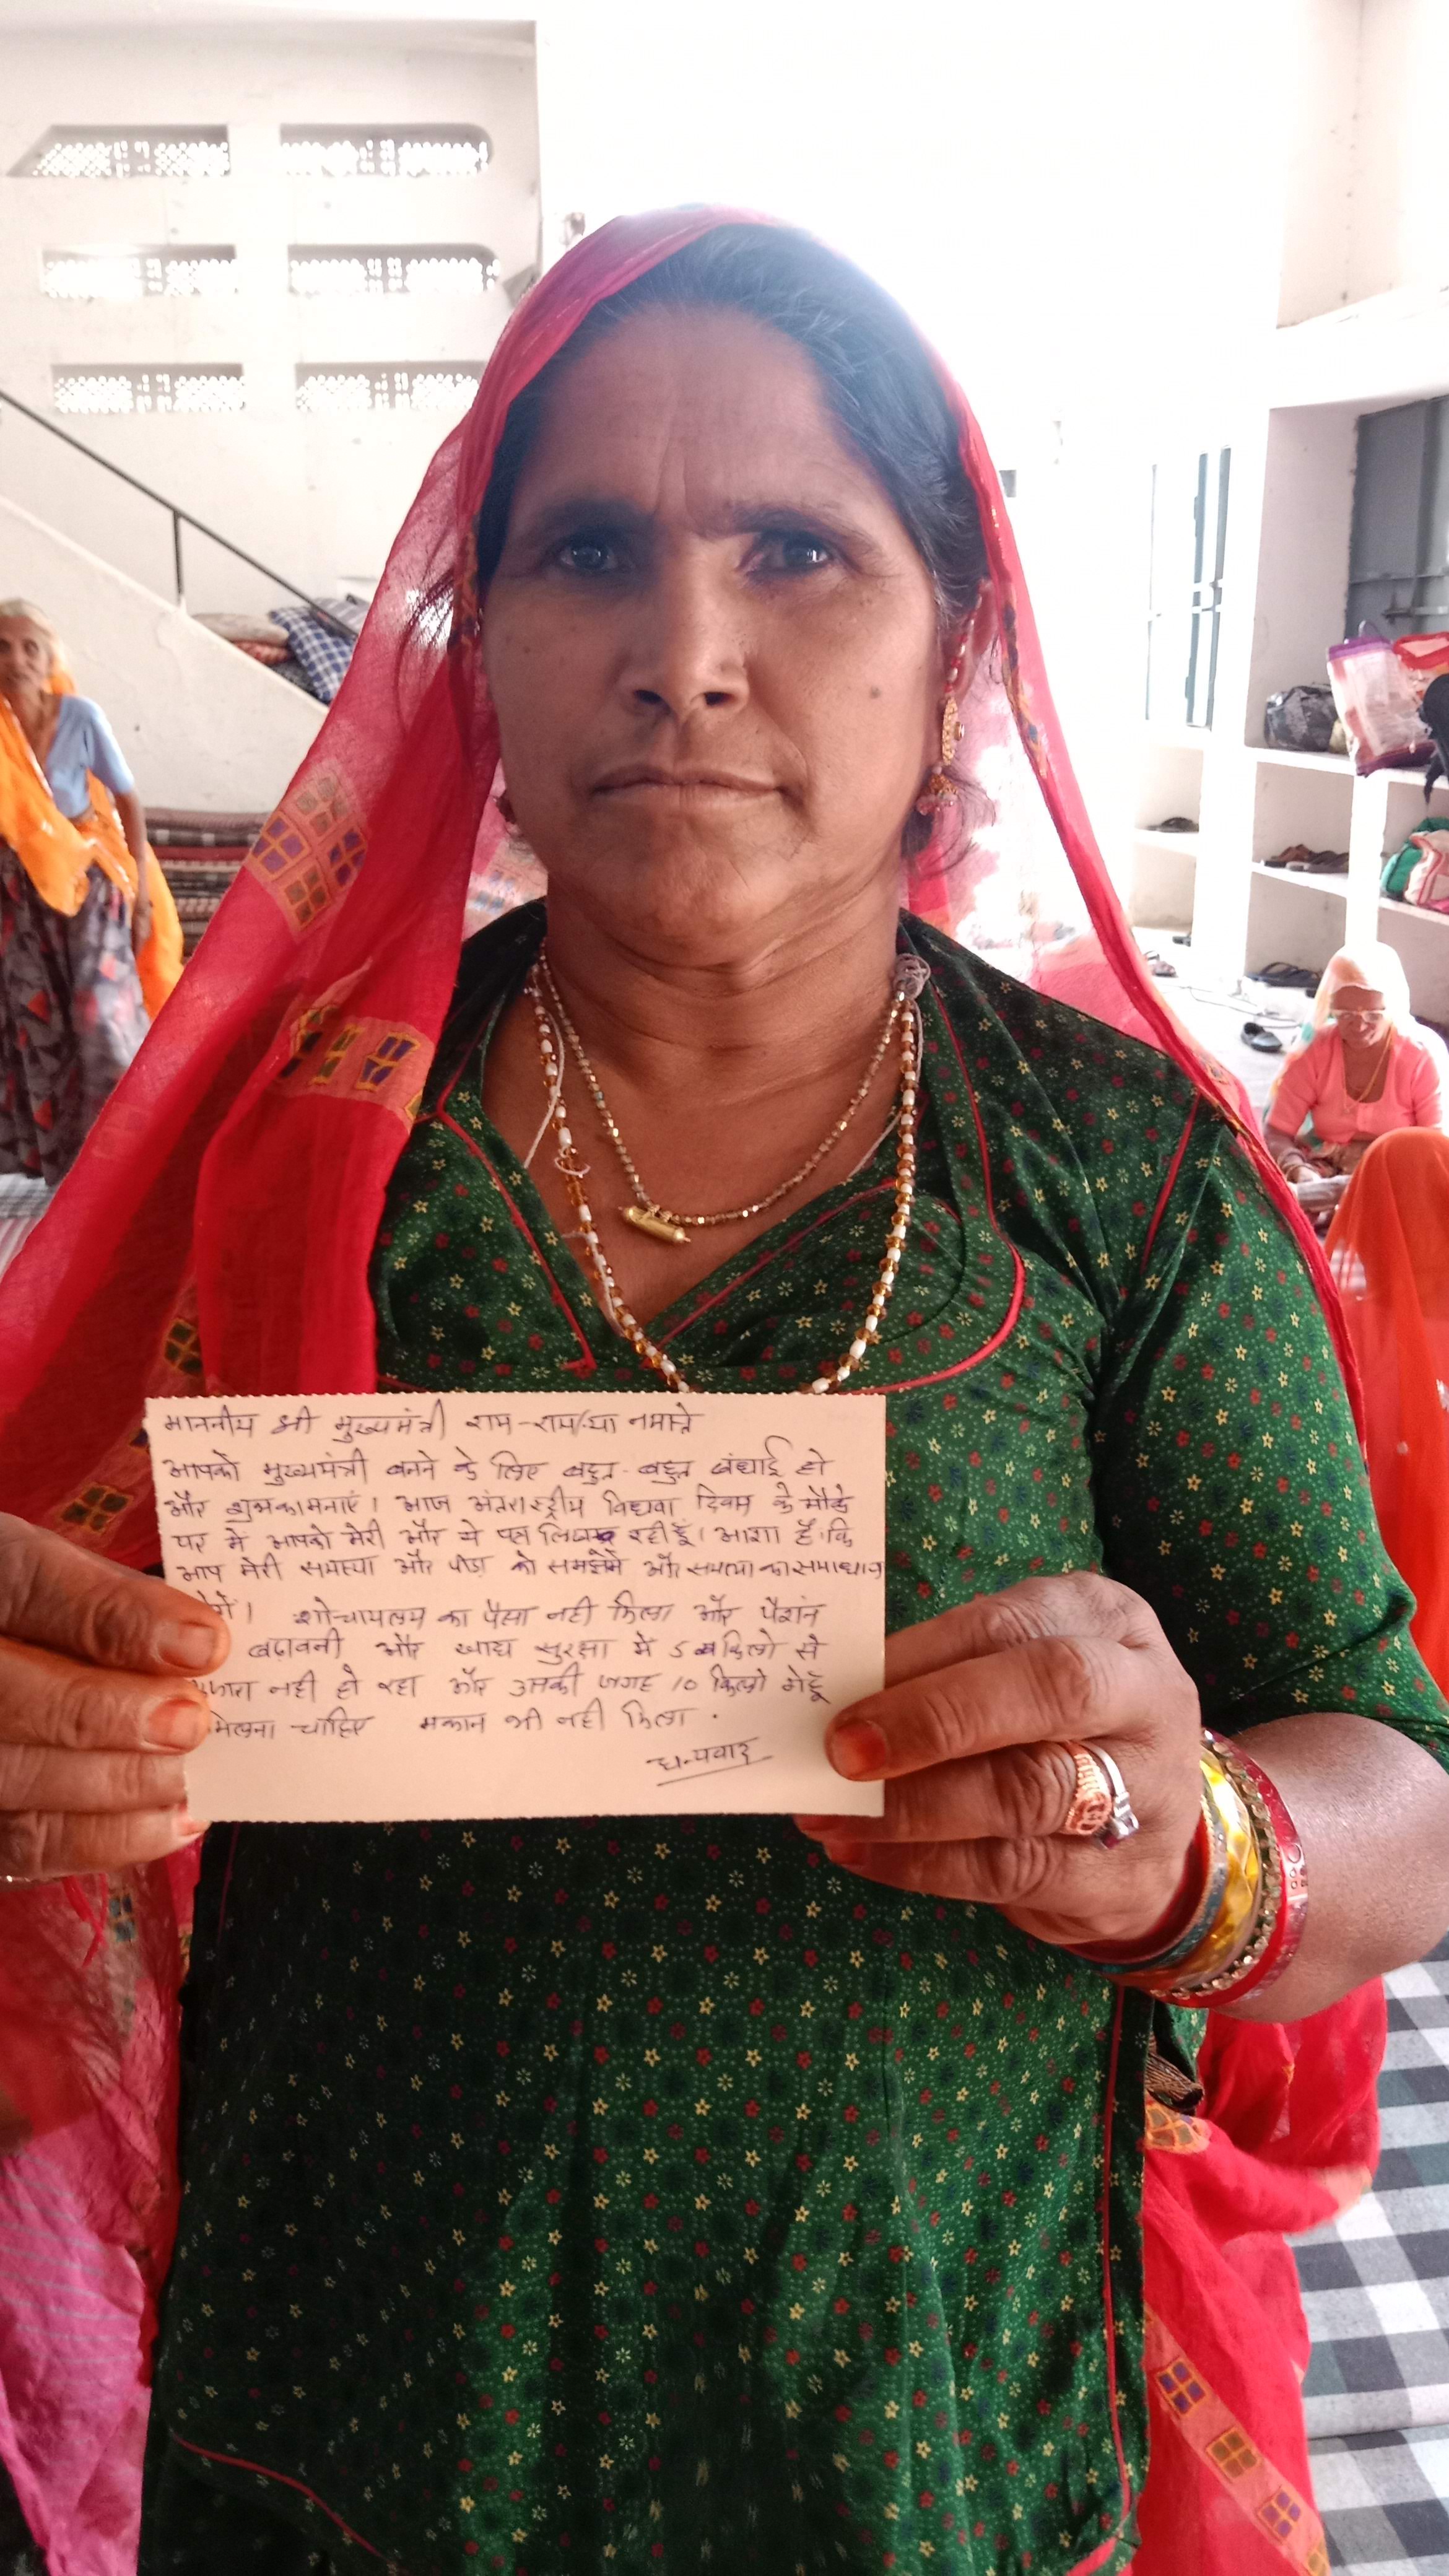 माननीय श्री मुख्यमंत्री राम-राम/या नमस्ते
आपको मुख्यमंत्री बनने के लिए बहुत-बहुत बंधाई हो
और शुभकामनाएं। आज अंतराष्ट्रीय विधवा दिवस के मौके
पर मे आपको मेरी और से पत्र लिख रही हूँ। आशा है कि
आप मेरी समस्या और पीड़ा को समझेंगे और समस्या का समाधान
शोचायलय का पैसा नही मिला और पैशंन
बढ़ावनी और खाद्य सुरक्षा में 5 किलो से
नही हो रहा और उसकी जगह 10 किलो गेहूँ
मिलना चाहिए मकान भी नही मिला .
धन्यवाद